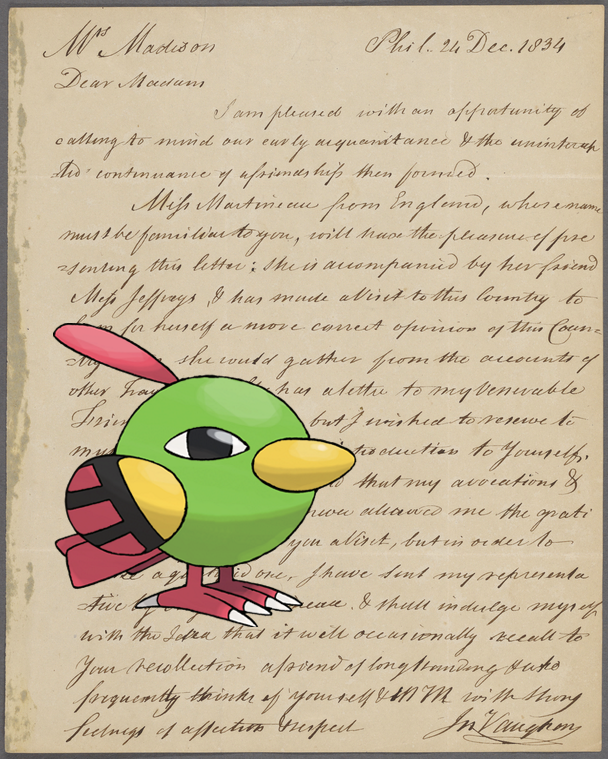 Mrs Madison Phil.. 24 Dec. 1834
Dear Madam
I am pleased with an opportunity of
calling to mind our early acquaintance & the uninterrup
ted continuance of a friendship then formed.
Miss Martineau from England, whose name
must be familiar to you, will have the pleasure of pre
senting this letter: She is accompanied by her friend
Miss Jeffreys, & has made a Visit to this Country to
for herself a more correct opinion of this Coun=
she would gather from the accounts of
other has a letter to my Venerable
but I wished to reserve to
introduction to Yourself,
that my avocations &
never allowed me the grati
you a Visit, but in order to
one, I have sent my representa
tive & shall indulge myself
with the Idea that it will occasionally recall to
Your recollection a friend of long standing & who
frequently thinks of yourself & Mr M with strong
feelings of affection & respect Jn Vaughan